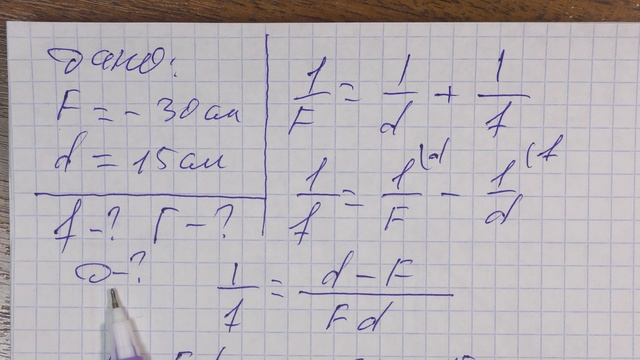 Дано:
F = - 30 см
d = 15 см
f - ? Г - ?
D - ?
1/F = 1/d + 1/f
1/f = 1/F (d - 1/d (f
1/f = d - F / Fd